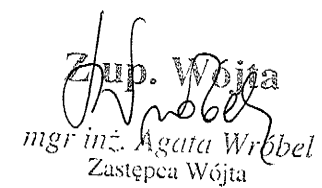 Z up. Wójta
mgr inż. Agata Wróbel
Zastępca Wójta